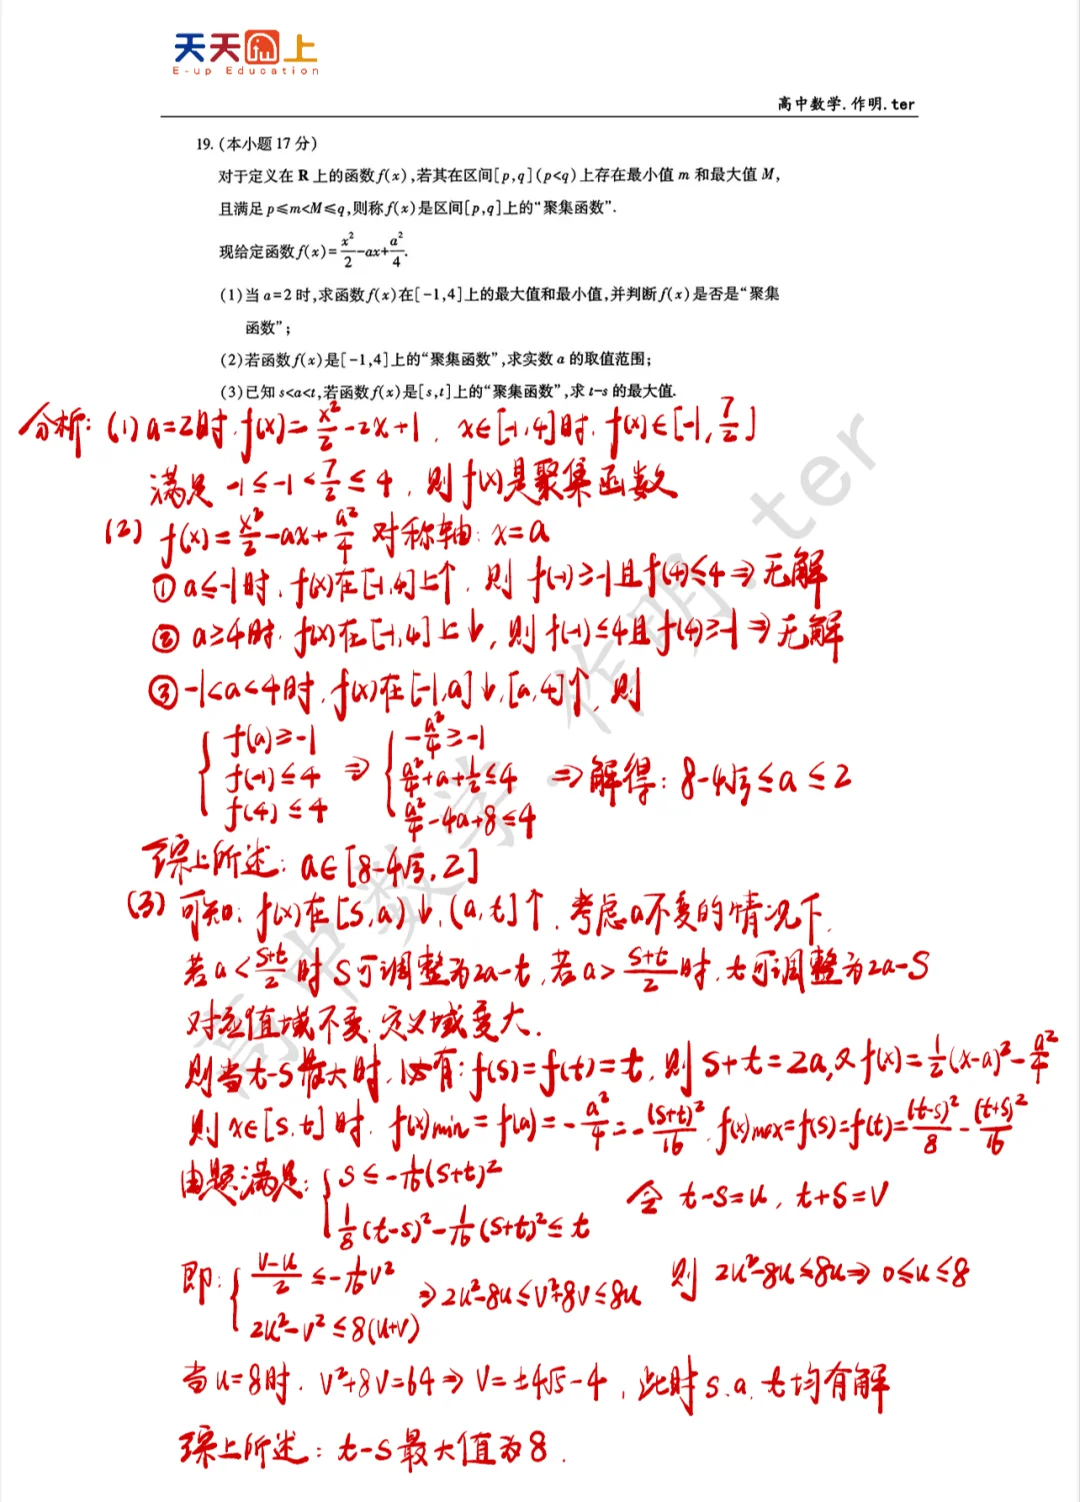 天天向上
E-up Education
高中数学.作明.ter
19.(本小题17分)
对于定义在R上的函数f(x),若其在区间[p,q](p<q)上存在最小值m和最大值M,
且满足p≤m<M≤q,则称f(x)是区间[p,q]上的“聚集函数”.
现给定函数f(x)=x²/2-ax+a²/4.
(1)当a=2时,求函数f(x)在[-1,4]上的最大值和最小值,并判断f(x)是否是“聚集
函数”;
(2)若函数f(x)是[-1,4]上的“聚集函数”,求实数a的取值范围;
(3)已知s<a<t,若函数f(x)是[s,t]上的“聚集函数”,求t-s的最大值.
分析:(1)a=2时.f(x)=x²/2-2x+1. x∈[-1,4]时.f(x)∈[-1,7/2]
满足 -1≤-1<7/2≤4,则f(x)是聚集函数
(2) f(x)=x²/2-ax+a²/4 对称轴:x=a
①a≤-1时.f(x)在[-1,4]上↑.则 f(-1)≥-1且f(4)≤4⇒无解
②a≥4时.f(x)在[-1,4]上↓,则f(-1)≤4且f(4)≥-1⇒无解
③-1<a<4时.f(x)在[-1,a]↓,[a,4]↑.则
{ f(a)≥-1 ⇒ { -a²/4≥-1
f(-1)≤4 a²/4+a+1/2≤4 ⇒解得:8-4√3≤a≤2
f(4)≤4 a²/4-4a+8≤4
综上所述:a∈[8-4√3,2]
(3)可知:f(x)在[s,a)↓,(a,t]↑.考虑a不变的情况下.
若a<(s+t)/2时s可调整为2a-t,若a>(s+t)/2时,t可调整为2a-s
对应值域不变.定义域变大.
则当t-s最大时,必有:f(s)=f(t)=t,则s+t=2a,又f(x)=1/2(x-a)²-a²/4
则x∈[s,t]时.f(x)min=f(a)=-a²/4=-(s+t)²/16.f(x)max=f(s)=f(t)=(t-s)²/8-(t+s)²/16
由题满足:{ s≤-1/16(s+t)² 令 t-s=u,t+s=v
1/8(t-s)²-1/16(s+t)²≤t
即:{ (v-u)/2≤-1/16v² ⇒2u²-8u≤v²+8v≤8u 则 2u²-8u≤8u⇒0≤u≤8
2u²-v²≤8(u+v)
当u=8时.v²+8v=64⇒v=±4√5-4,此时s.a.t均有解
综上所述:t-s最大值为8.
高中数学·作明.ter